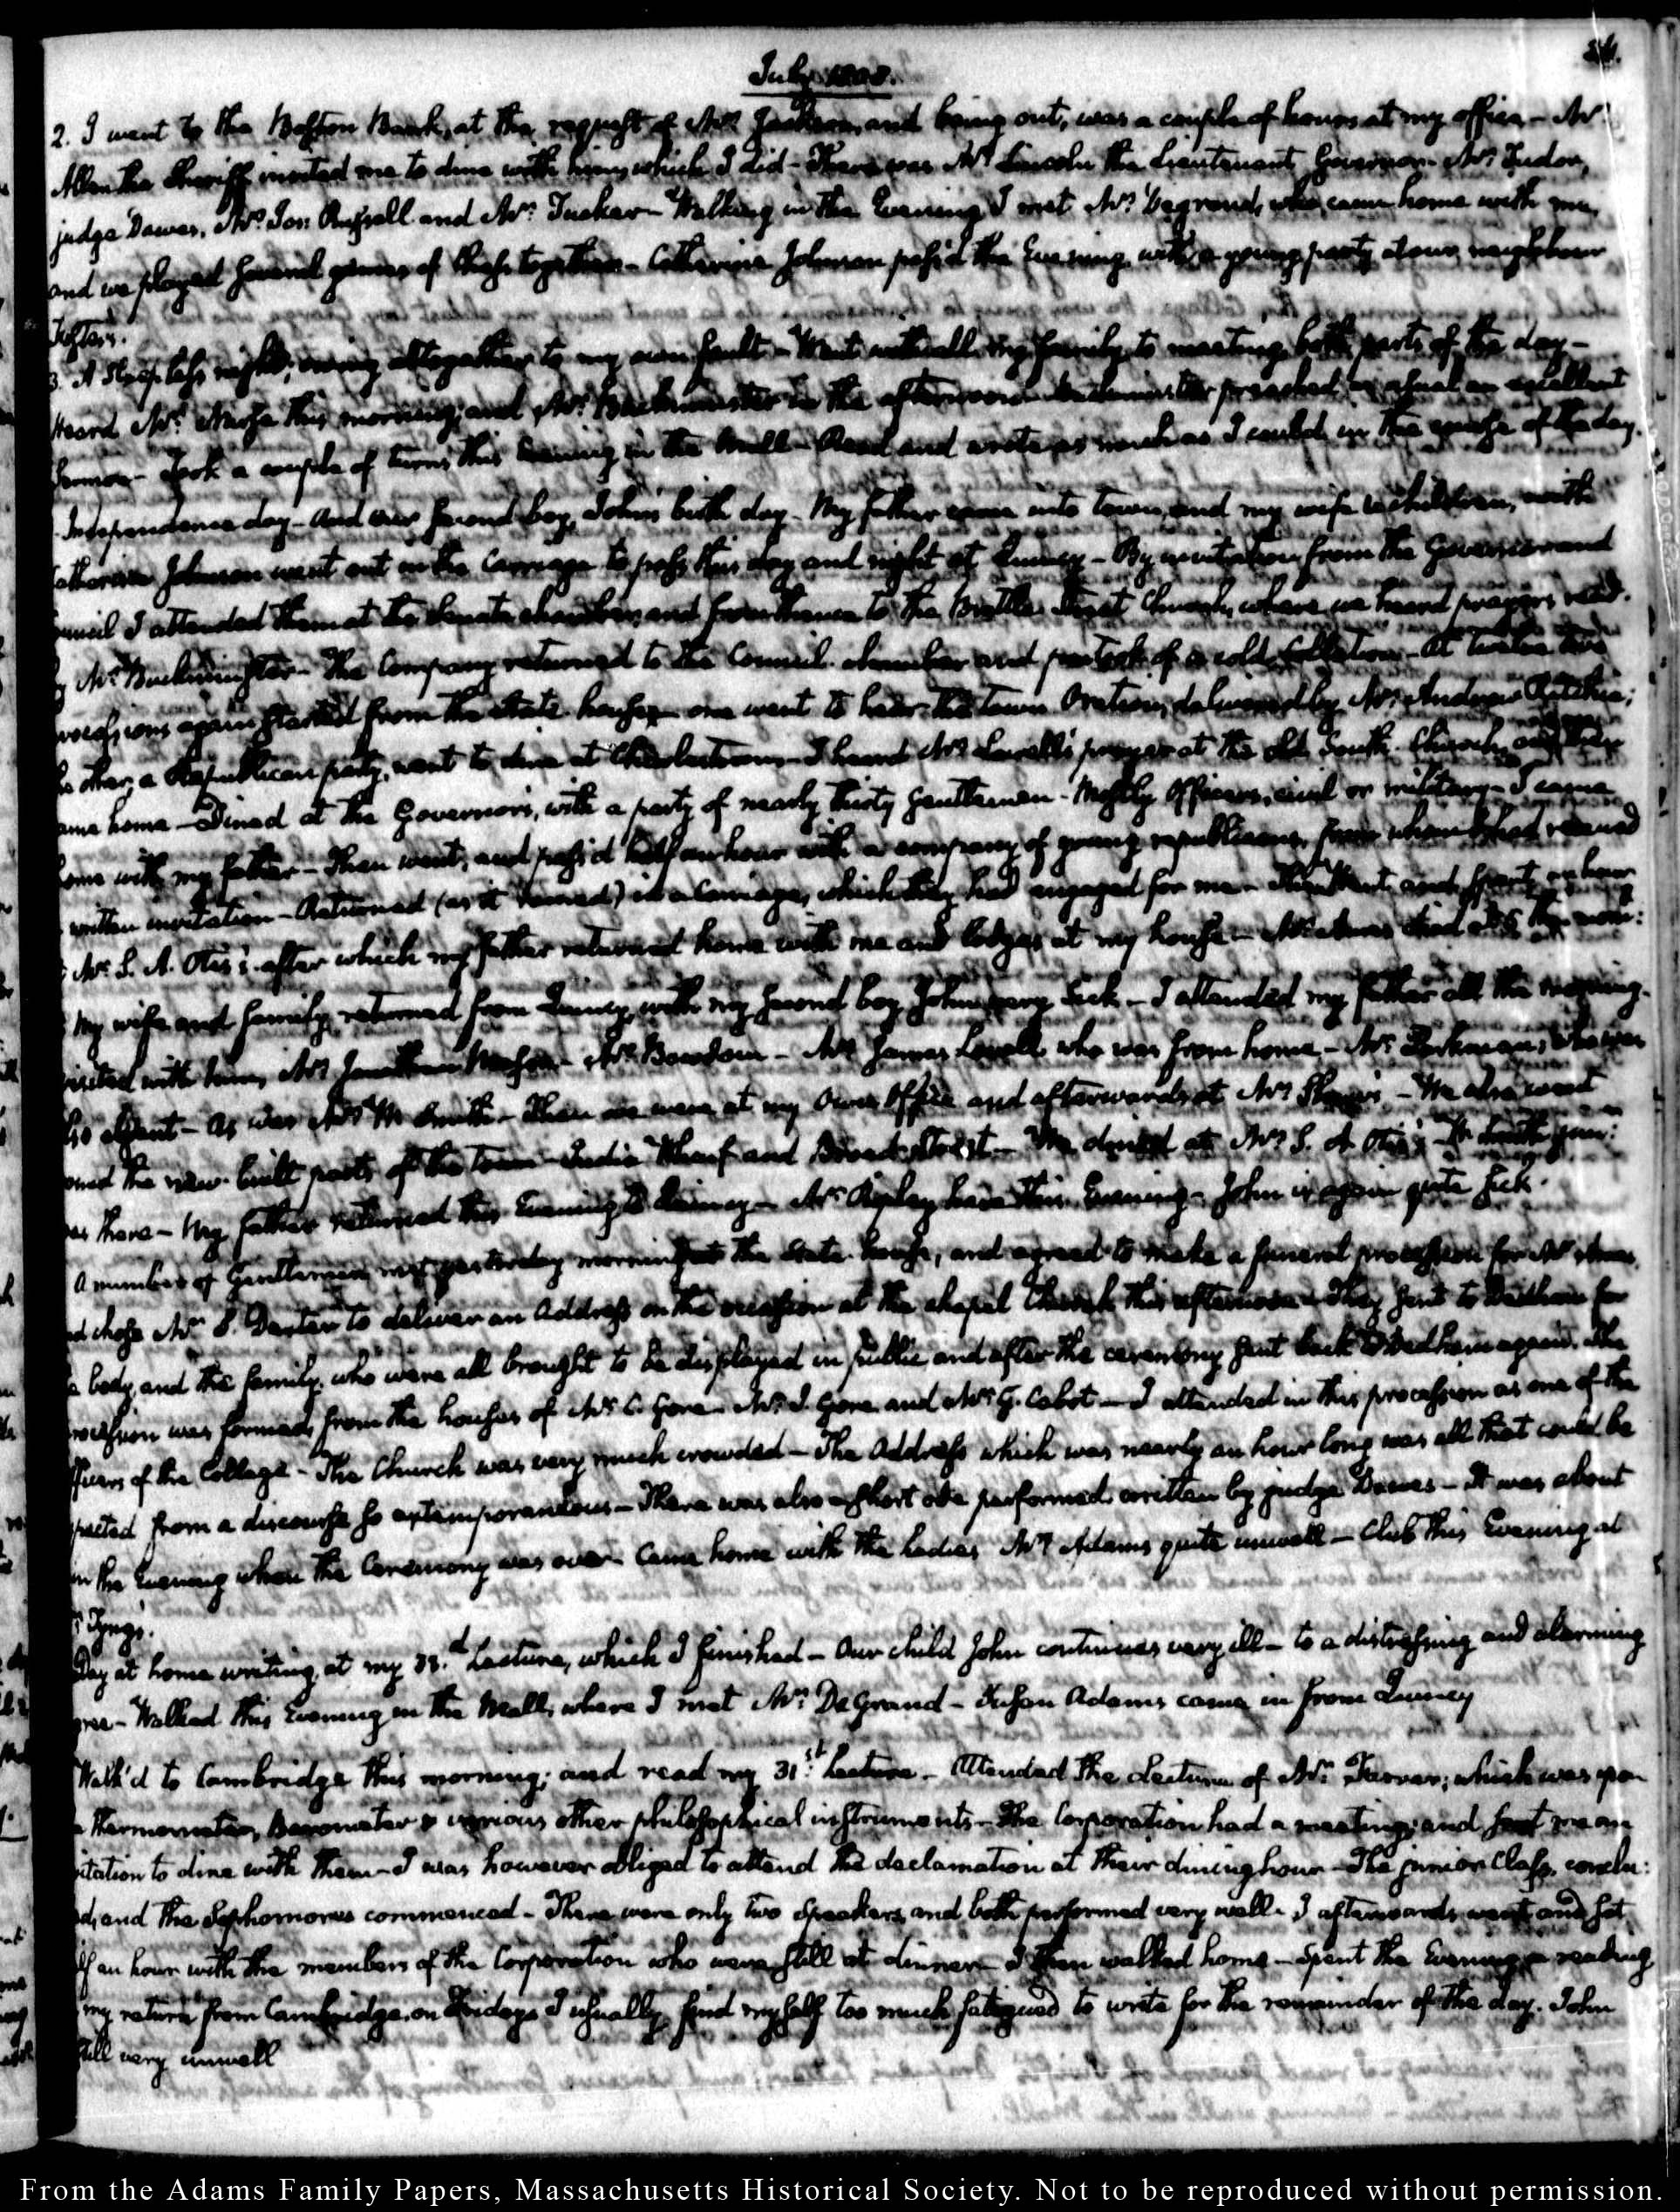 July 1808.
2. I went to the Boston Bank, at the request of Mr. Jackson, and being out, was a couple of hours at my office – Mr.
Allen the Sheriff invited me to dine with him, which I did – There was Mr. Lincoln the Lieutenant Governor – Mr. Tudor,
judge Dawes, Mr. Jos: Russell and Mr. Tucker – Walking in the Evening I met Mr. Degrand, who came home with me,
and we played several games of Chess together – Catherine Johnson pass'd the Evening with a young party at our neighbour
3. A Sleepless night; owing altogether to my own fault – Went with all my family to meeting both parts of the day –
Heard Mr. this morning; and Mr. Buckminster in the afternoon – Buckminster preached as usual an excellent
Sermon – Took a couple of turns this Evening in the Mall – Read and wrote as much as I could in the course of the day.
Independence day – And our second boy, John's birth day – My father came into town, and my wife & children, with
Catherine Johnson went out in the Carriage to pass this day and night at Quincy – By invitation from the Governor and
Council I attended them at the Senate chamber, and from thence to the Brattle Street Church, where we heard prayers read
Mr. Buckminster – The Company returned to the Council chamber and partook of a cold Collation – At twelve two
processions again started from the State house – one went to hear the town Oration, delivered by Mr. Andrew Ritchie;
the other, a Republican party, went to dine at Charlestown – I heard Mr. prayer at the old South Church, and then
came home – Dined at the Governor's, with a party of nearly thirty Gentlemen – Mostly Officers, civil or military – I came
home with my father – Then went, and pass'd half an hour with a company of young republicans, from whom I had received
written invitation – Returned (as it rained) in a Carriage, which they had engaged for me – Then went and spent an hour
Mr. S. A. Otis's after which my father returned home with me and lodges at my house –
My wife and family returned from Quincy, with my second boy John very sick – I attended my father all the morning.
visited with him, Mr. Jonathan Mason – Mr. Bowdoin – Mr. James Lovell who was from home – Mr. Parkman, who was
also absent – As was Mr. Wm. Smith – Then we were at my Own Office and afterwards at Mr. – We also went
round the new-built parts of the town – India Wharf and Broad Street – We dined at Mr. S. A. Otis's –
was there – My father returned this Evening to Quincy – Mr. Ripley here this Evening – John is again quite sick.
A number of Gentlemen met yesterday morning at the State house, and agreed to make a funeral procession for Mr. Ames
and chose Mr. S. Dexter to deliver an Address on the occasion at the chapel Church this afternoon – They sent to Dedham for
body, and the family, who were all brought to be displayed in public and after the ceremony sent back to Dedham again. The
procession was formed from the houses of Mr. C. Gore – Mr. J. Gore and Mr. G. Cabot – I attended in this procession as one of the
Officers of the College – The Church was very much crowded – The Address which was nearly an hour long was all that could be
expected from a discourse so extemporaneous – There was also a short ode performed written by judge Dawes – It was about
in the Evening when the Ceremony was over – Came home with the ladies Mrs. Adams quite unwell – Club this Evening at
Tyng's.
Day at home writing at my 33d. Lecture, which I finished – Our child John continues very ill – to a distressing and alarming
degree – Walked this Evening in the Mall, where I met Mr. DeGrand – Susan Adams came in from Quincy
Walk'd to Cambridge this morning; and read my 31st. Lecture – Attended the Lecture of Mr. Farrar; which was upon
Thermometer, Barometer & various other philosophical instruments – The Corporation had a meeting; and sent me an
invitation to dine with them – I was however obliged to attend the declamation at their dining hour – The junior Class, conclu:
ded, and the Sophomores commenced – There were only two Speakers, and both performed very well – I afterwards went and sat
half an hour with the members of the Corporation who were still at dinner – I then walked home – Spent the Evening reading
my return from Cambridge, on Fridays I usually find myself too much fatigued to write for the remainder of the day. John
still very unwell
From the Adams Family Papers, Massachusetts Historical Society. Not to be reproduced without permission.